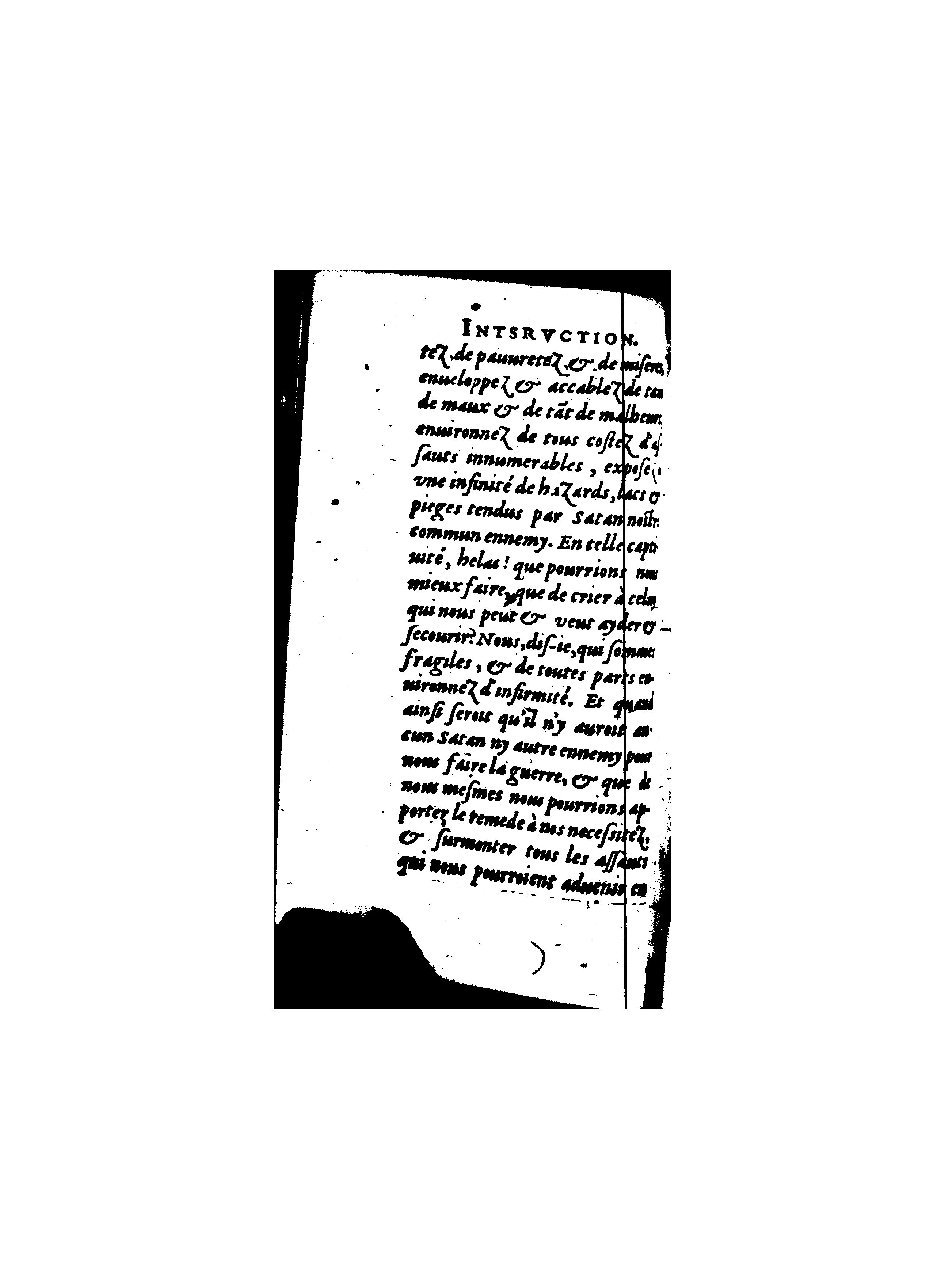 INTSRVCTION.
tez de pauuretez & de misere,
enueloppez & accablez de tan
de maux & de tãt de malheurs
enuironnez de tous costez d'as
sauts innumerables, expose
vne infinité de hazards, lacs &
pieges tendus par Satan nostr
commun ennemy. En telle capti
uité, helas! que pourrions nou
mieux faire, que de crier à celuy
qui nous peut & veut ayder &
secourir? Nous, dis-ie, qui sommes
fragiles, & de toutes parts en
uironnez d'infirmité. Et quand
ainsi seroit qu'il n'y auroit au
cun Satan ny autre ennemy pour
nous faire la guerre, & que de
nous mesmes nous pourrions ap-
porter le remede à nos necessitez,
& surmonter tous les assauts
qui nous pourroient aduenir en